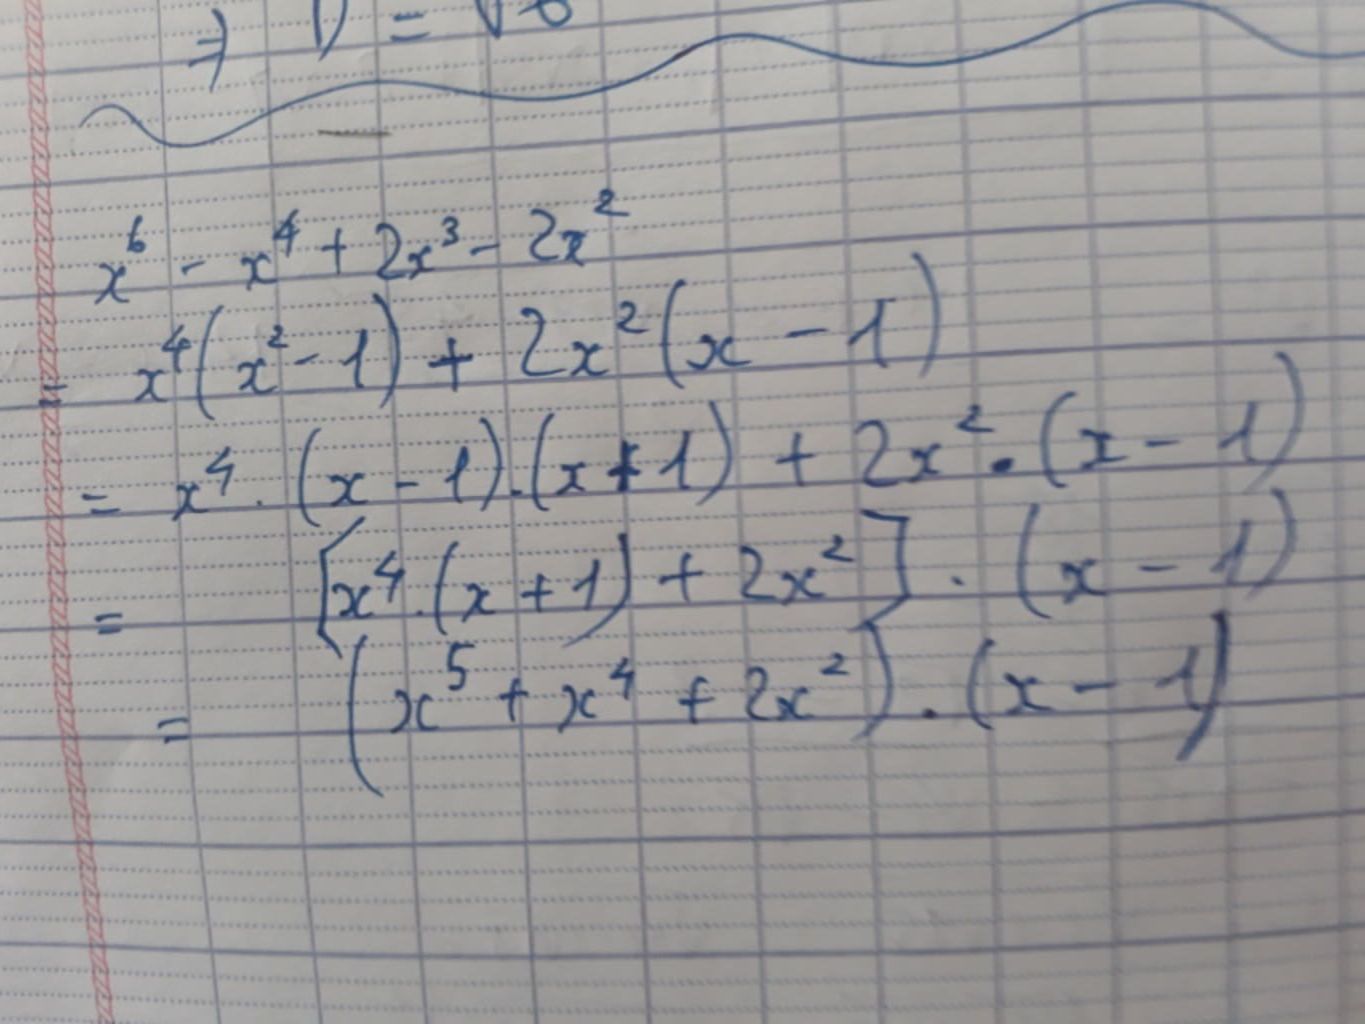 ⇒ D = √6
x⁶ - x⁴ + 2x³ - 2x²
= x⁴(x² - 1) + 2x²(x - 1)
= x⁴.(x - 1).(x + 1) + 2x².(x - 1)
= [x⁴.(x + 1) + 2x²].(x - 1)
= (x⁵ + x⁴ + 2x²).(x - 1)